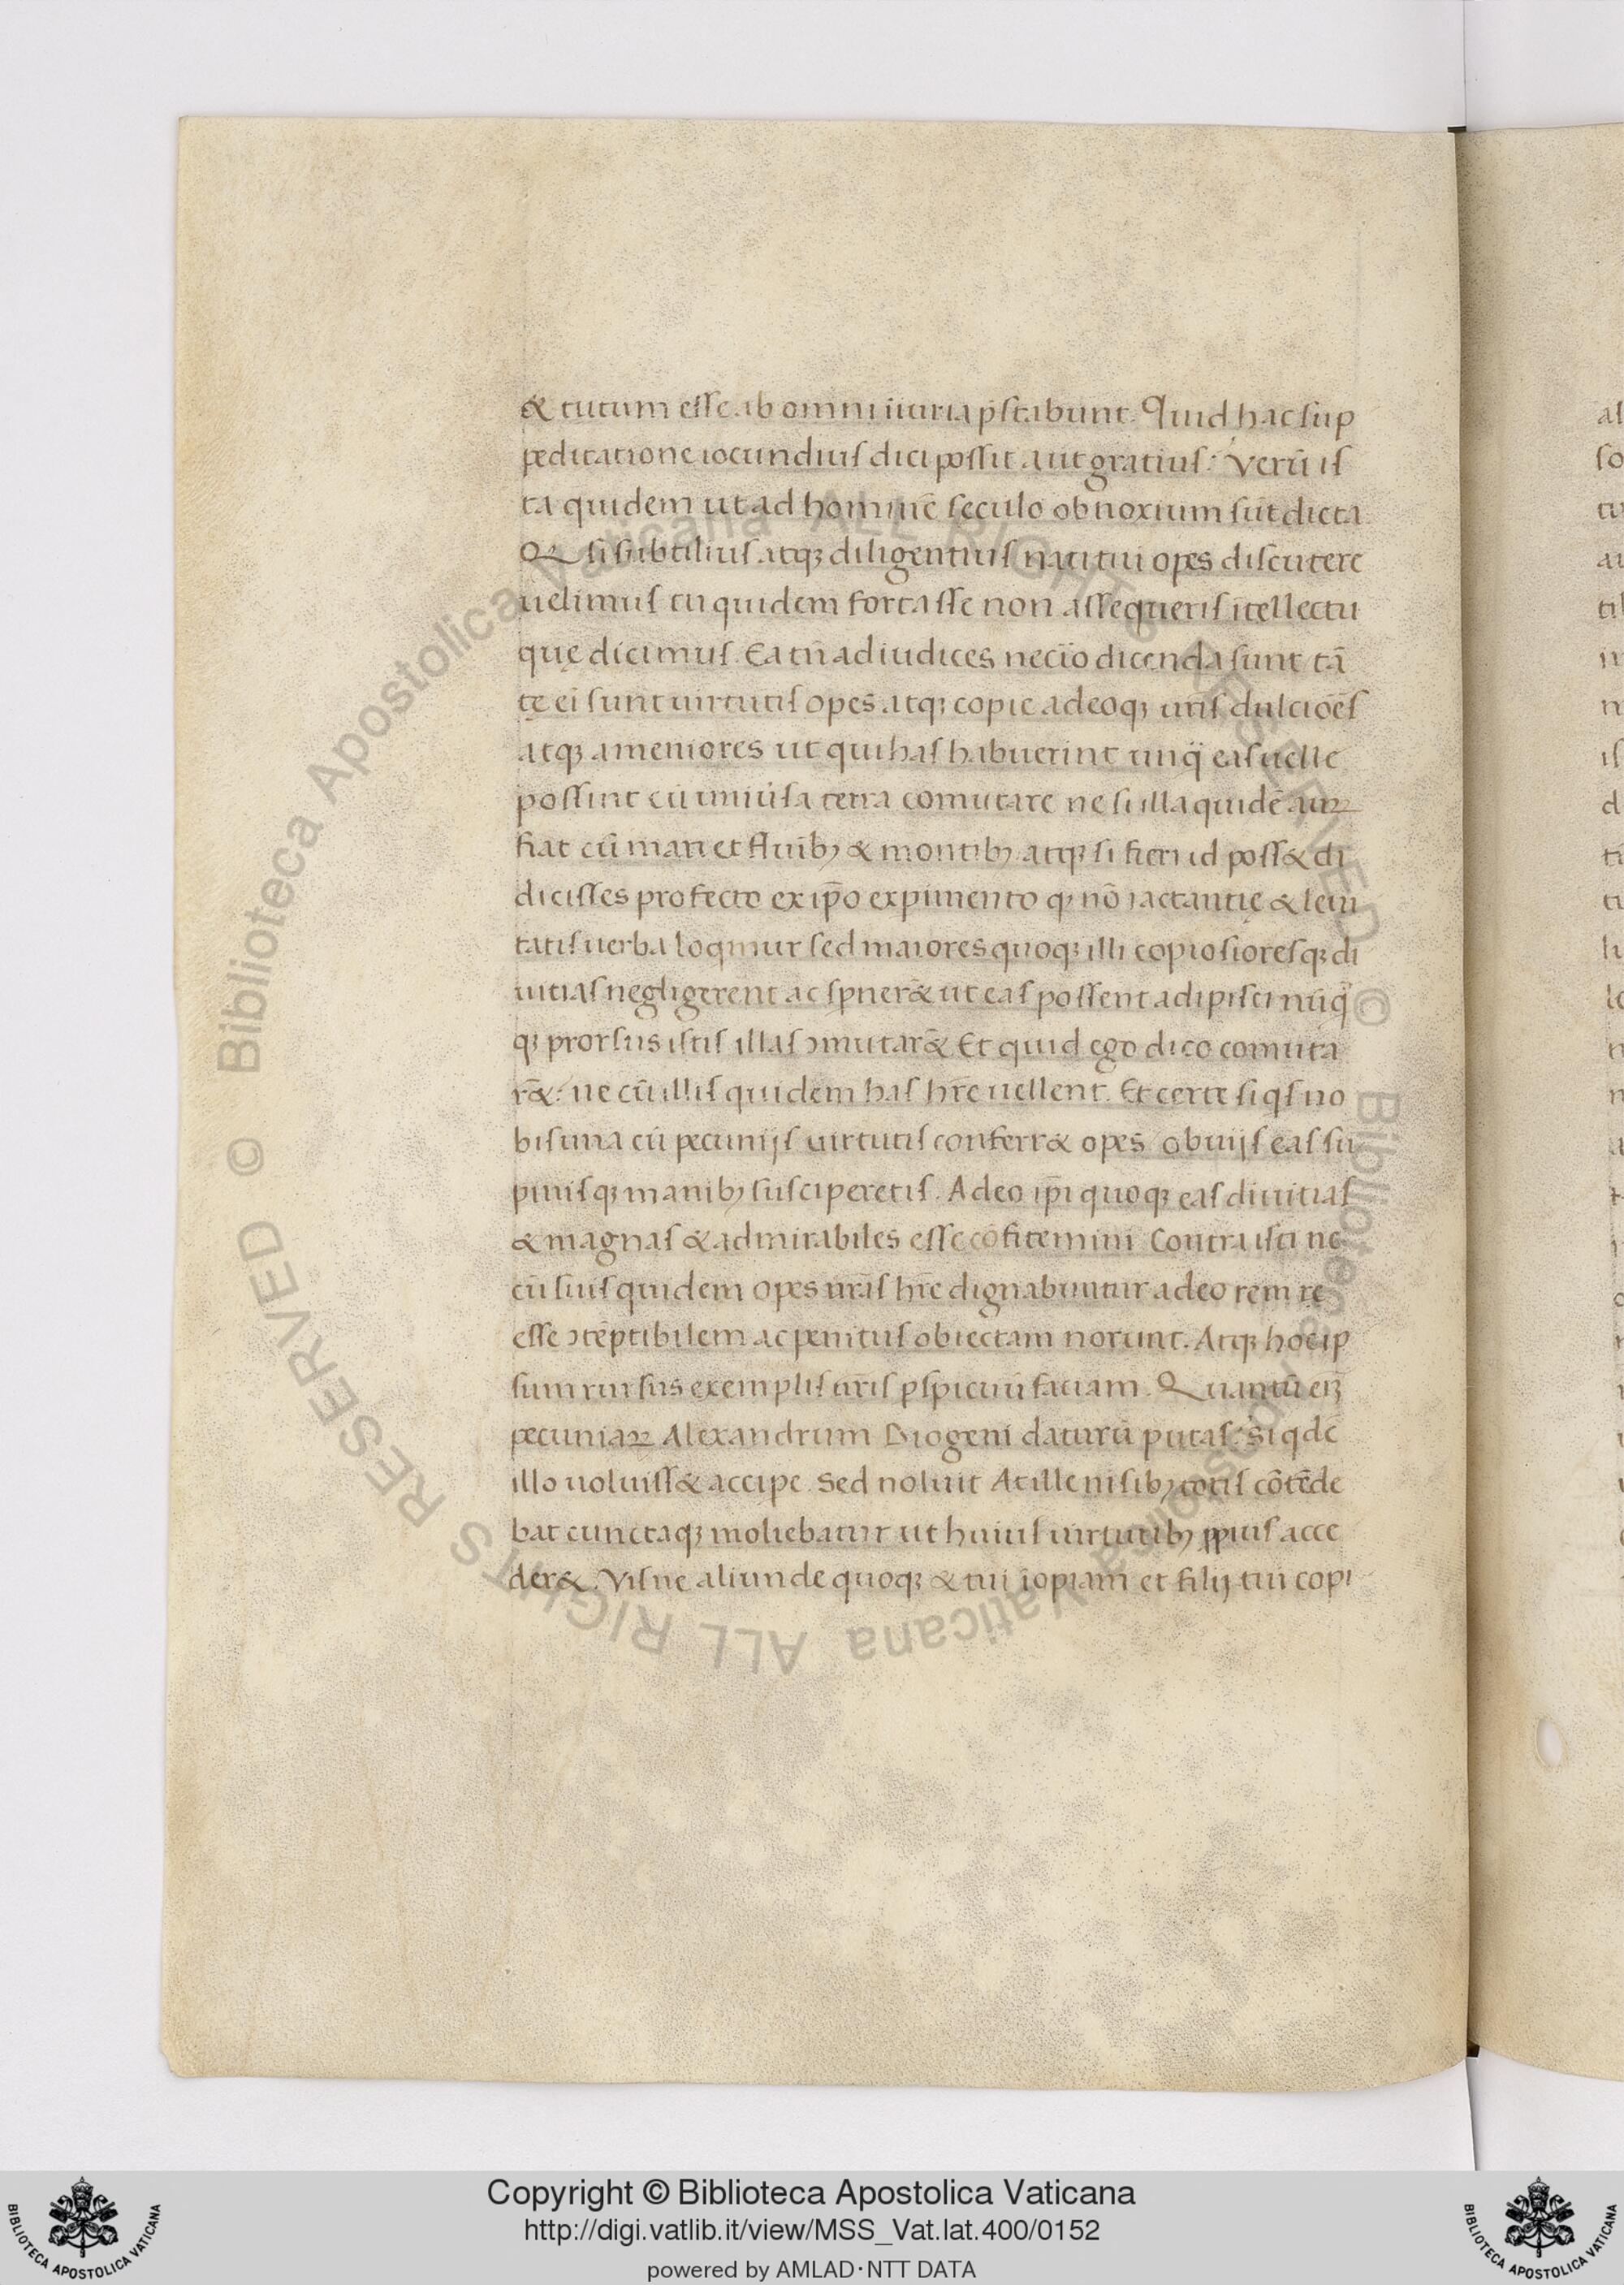 & tutum esse ab omni iniuria p̄stabunt. Quid hac sup
peditatione iocundius dici possit aut gratius? Verū is
ta quidem ut ad hominē seculo obnoxium sūt dicta.
Qꝝ si subtilius atqꝫ diligentius nati tui opes discutere
uelimus tu quidem fortasse non assequeris ītellectu
quę dicimus. Ea tn̄ ad iudices necīo dicenda sunt tā
tę ei sunt uirtutis opes atqꝫ copie adeoqꝫ ur̄is dulcioēs
atqꝫ ameniores ut qui has habuerint nnq̄ eas uelle
possint cū uniu̇sa terra comutare ne si illa quidē auꝝ
fiat cū mari et fluībꝫ & montibꝫ atqꝫ si fieri id poss& di
dicisses profecto ex ip̄o expimento qꝫ nō iactantię & leui
tatis uerba loqimur sed maiores quoqꝫ illi copiosioresqꝫ di
uitias negligerent ac spner& ut eas possent adipisci nūq̄
qꝫ prorsus istis illas ꝯmutar& Et quid ego dico comuta
r&? ne cū illis quidem has hr̄e uellent. Et certe si qs no
bis una cū pecunijs uirtutis conferr& opes obuijs eas su
pinisqꝫ manibꝫ susciperetis. Adeo ip̄i quoqꝫ eas diuitias
& magnas & admirabiles esse cōfitemini Contra isti ne
cū suis quidem opes ur̄as hr̄e dignabuntur adeo rem re
esse ꝯtēptibilem ac penitus obiectam norunt. Atqꝫ hoc ip
sum rursus exemplis ur̄is ꝑspicuū faciam. Quantū eiꝫ
pecuniaꝝ Alexandrum Diogeni daturū putas? Si qdē
illo uoluiss& accipe. Sed noluit At ille nisibꝫ totis cōtēde
bat cunctaqꝫ moliebatur ut huius uirtutibꝫ ꝓpius acce
der&. Visne aliunde quoqꝫ & tui īopiam et filij tui copi
Copyright © Biblioteca Apostolica Vaticana
http://digi.vatlib.it/view/MSS_Vat.lat.400/0152
powered by AMLAD·NTT DATA